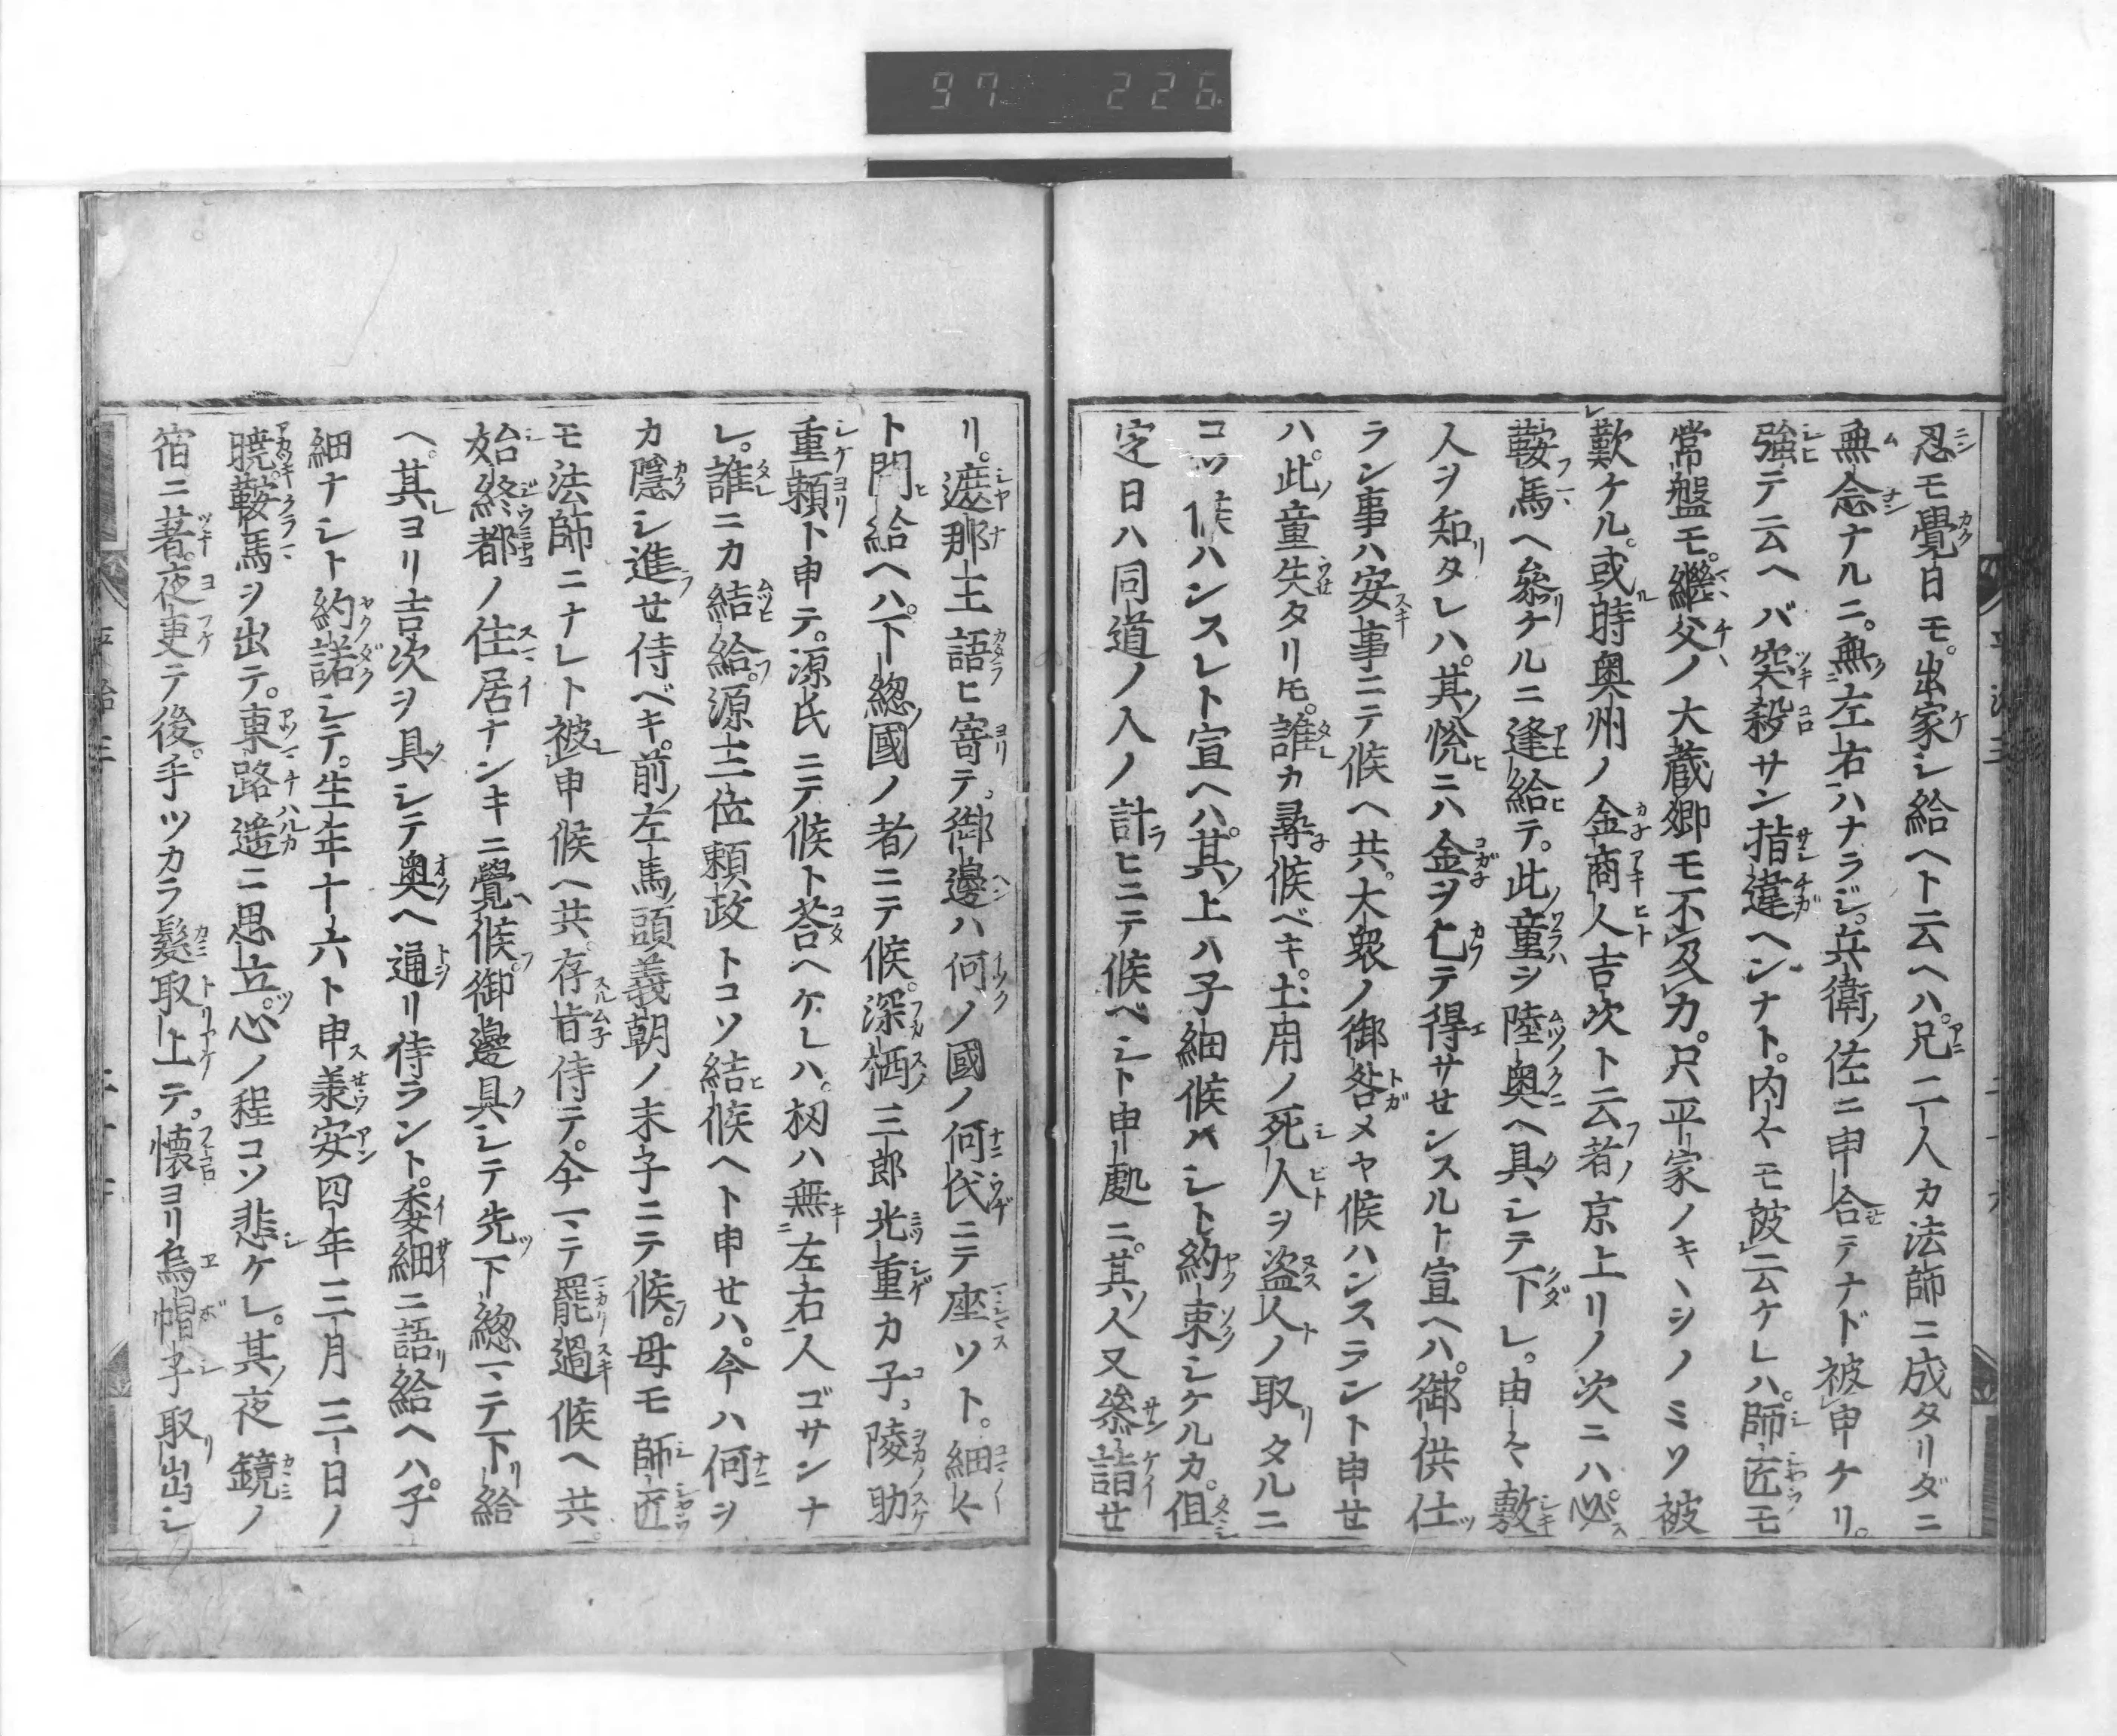 97 226
忍モ覺日モ。出家シ給ヘト云ヘハ。兄二人カ法師ニ成タリダニ
無念ナルニ。無左右ハナラジ。兵衛佐ニ申合テナド被申ケリ。
強テ云ヘバ突殺サン指違ヘンナト。内々モ被云ケレハ。師匠モ
常盤モ。繼父ノ大蔵卿モ不及力。只平家ノキヽヲノミソ被
歎ケル。或時奥州ノ金商人吉次ト云者京上リノ次ニハ必
鞍馬ヘ參ケルニ逢給テ。此童ヲ陸奥ヘ具シテ下レ。由々敷
人ヲ知タレハ。其悦ニハ金ヲ乞テ得サセンスルト宣ヘハ。御供仕
ラン事ハ安事ニテ候ヘ共。大衆ノ御咎メヤ候ハンスラント申セ
ハ。此童失タリ𪜈。誰カ尋候ベキ。土用ノ死人ヲ盗人ノ取タルニ
コソ候ハンスレト宣ヘハ。其上ハ子細候ハシト約束シケルカ。但
定日ハ同道ノ人ノ計ヒニテ候ベシト申處ニ。其人又參詣セ
リ。遮那王語ヒ寄テ。御邊ハ何ノ國ノ何氏ニテ座ソト。細々
ト問給ヘハ。下総國ノ者ニテ候。深栖三郎光重カ子。陵助
重頼ト申テ。源氏ニテ候ト荅ヘケレハ。扨ハ無左右人ゴサンナ
レ。誰ニカ結給。源三位頼政トコソ結候ヘト申セハ。今ハ何ヲ
カ隱シ進セ侍ベキ。前左馬頭義朝ノ末子ニテ候。母モ師匠
モ法師ニナレト被申候ヘ共。存旨侍テ。今マテ罷過候ヘ共。
始終都ノ住居ナンキニ覺候。御邊具シテ先下総マテ下給
ヘ。其ヨリ吉次ヲ具シテ奥ヘ通リ侍ラント。委細ニ語給ヘハ。子
細ナシト約諾シテ。生年十六ト申羕安四年三月三日ノ
曉。鞍馬ヲ出テ。東路遙ニ思立。心ノ程コソ悲ケレ。其夜鏡ノ
宿ニ著。夜更テ後。手ツカラ髮取上テ。懐ヨリ烏帽子取出シ